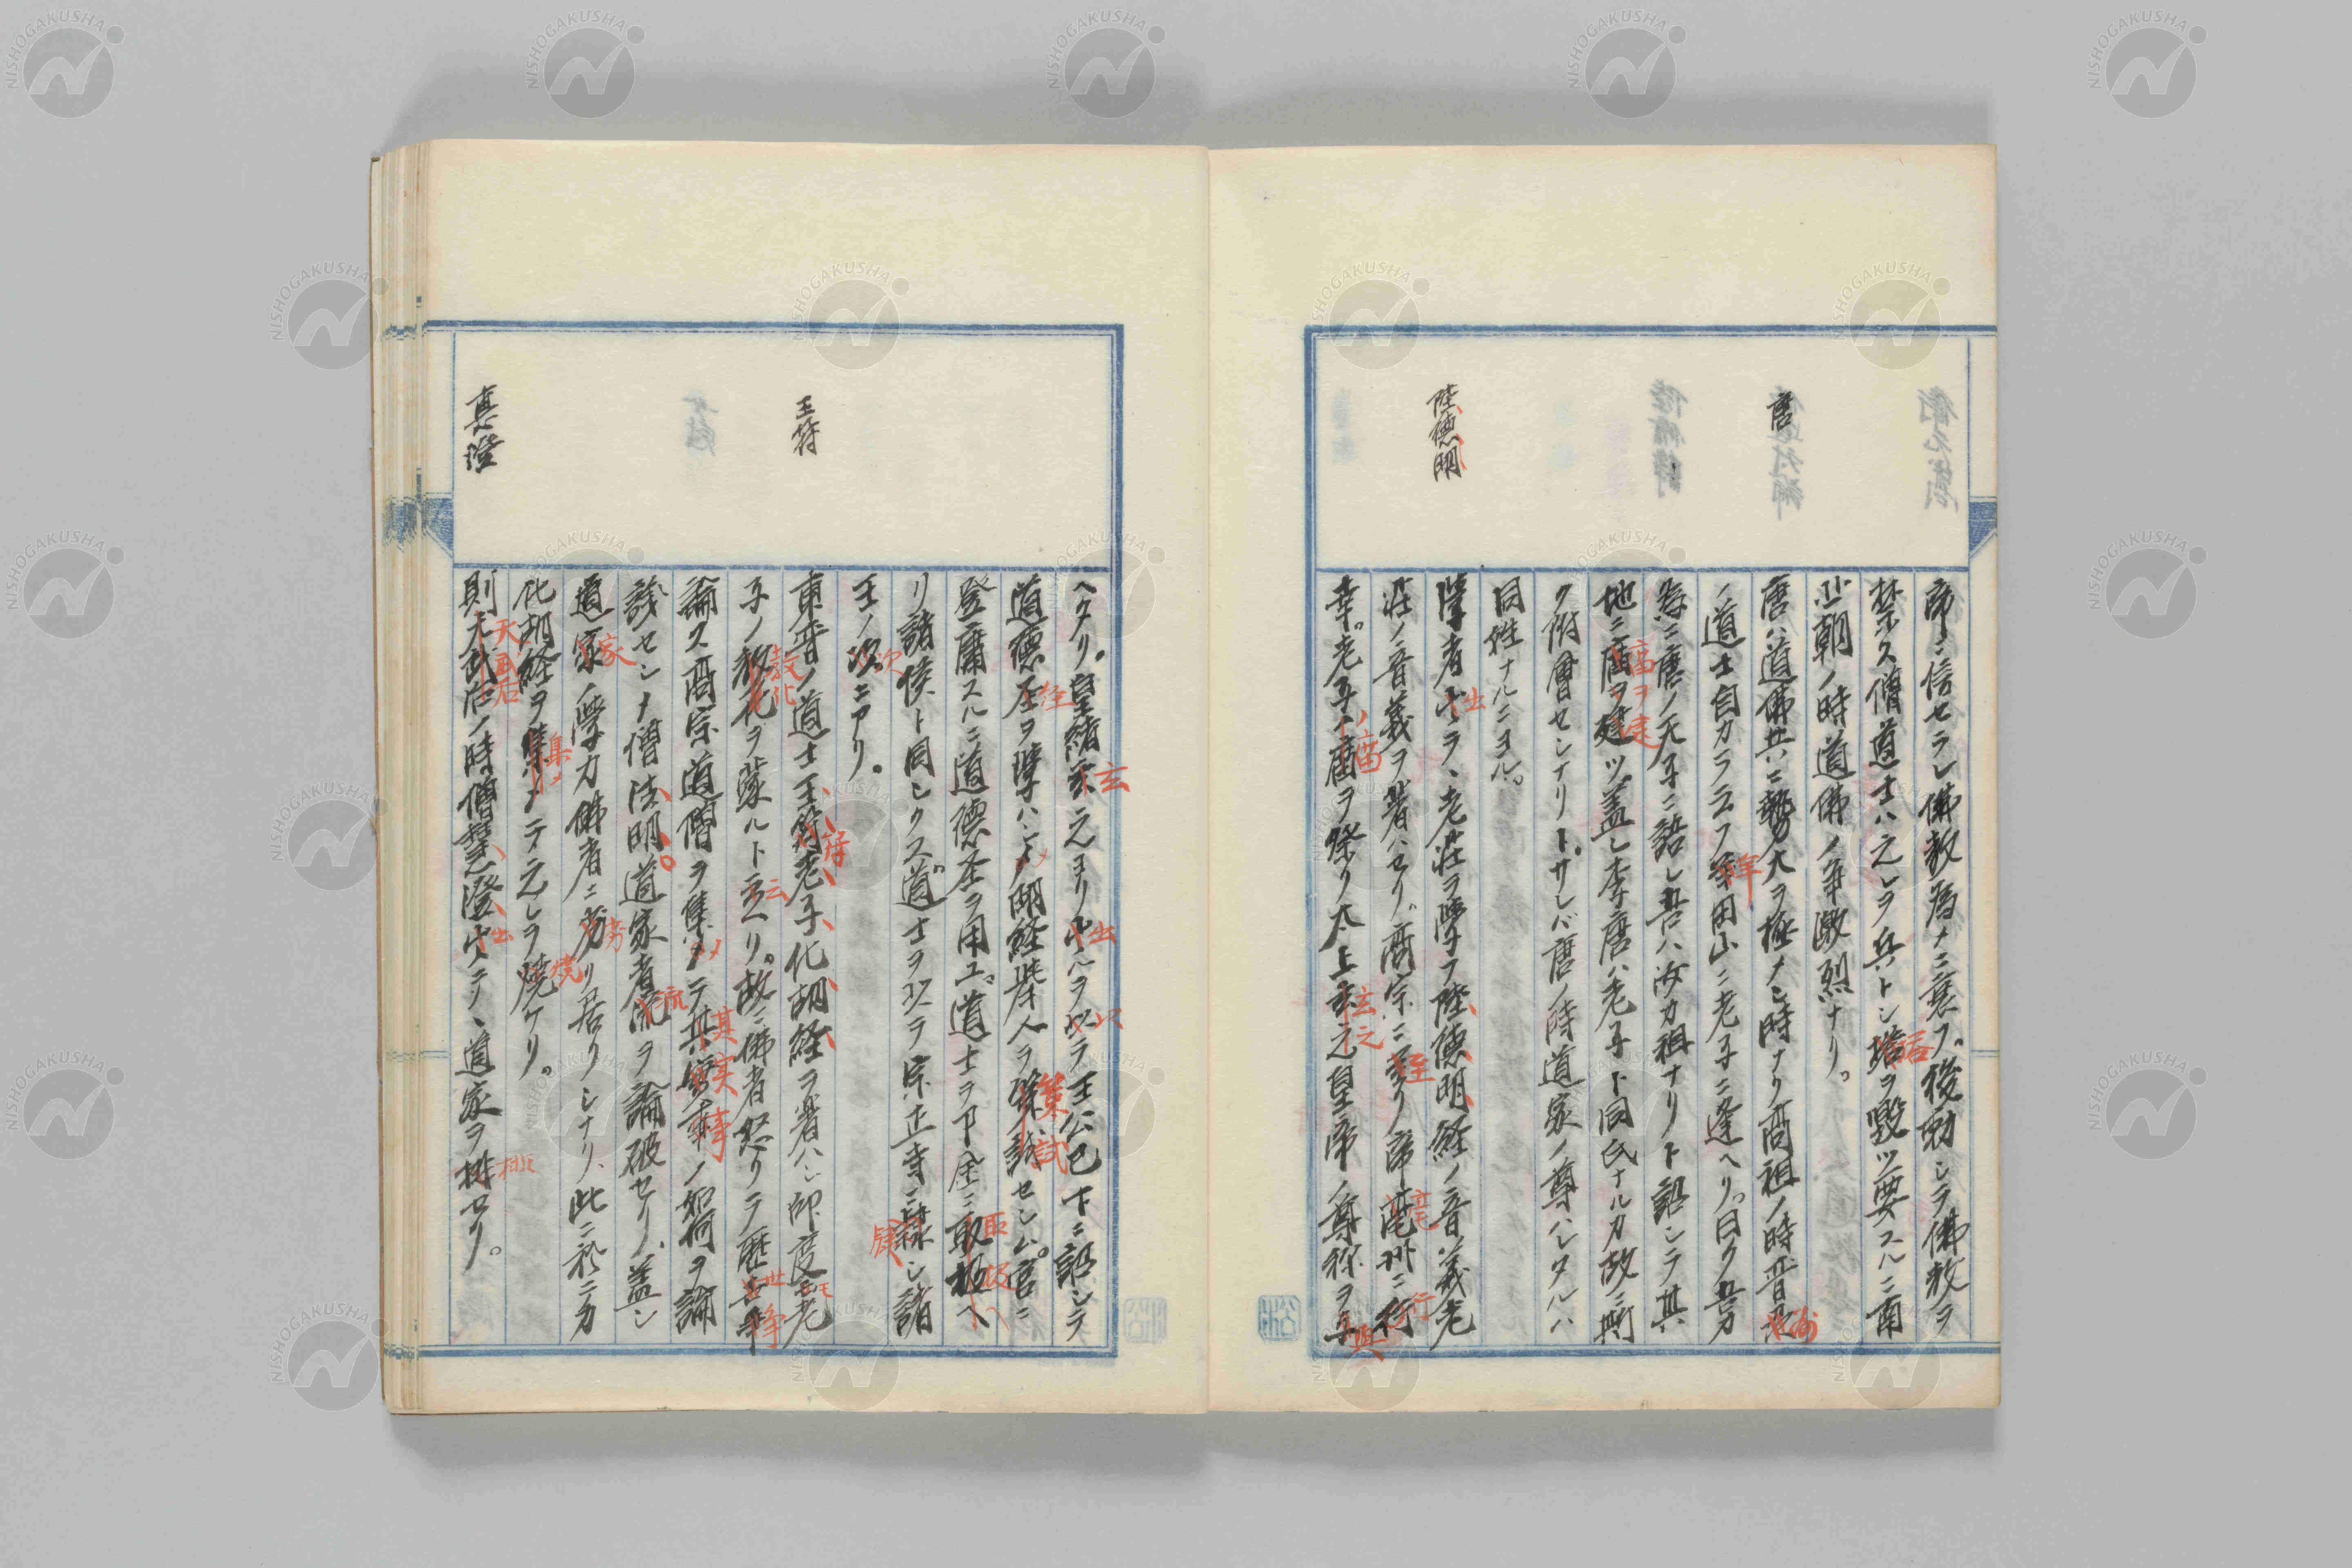 帝ニ信セラレ佛教為メニ衰フ。後勅シテ佛教ヲ
禁ス僧道士ハ之レヲ兵トシ塔ヲ毀ツ要スルニ南
北朝ノ時道佛ノ争激烈ナリ。
唐
唐ハ道佛共ニ勢力大ヲ極メシ時ナリ高祖ノ時晋州
ノ道士自カラ云フ羊角山ニ老子ニ逢ヘリ。曰ク吾カ
為ニ唐ノ天子ニ語レ吾ハ汝カ祖ナリト詔シテ其
地ニ廟ヲ建ツ。蓋シ李唐ハ老子ト同氏ナルカ故ニ斯
ク附會センナリト。サレバ唐ノ時道家ノ尊ハレタルハ
同姓ナルニヨル。
陸德明
學者出テヽ老荘ヲ學フ陸德明経ノ音義老
荘ノ音義ヲ著ハセリ。高宗ニ至リ帝亳州ニ行
幸。老子ノ廟ヲ祭リ太上玄元皇帝ノ尊称ヲ與
ヘタリ。皇緒玄元ヨリ出ルヲ以テ王公已下ニ詔シテ
道德経ヲ學ハシメ明経挙人ヲ策試セシム。官ニ
登庸スルニ道德経ヲ用ユ。道士ヲ下全ニ取扱ヘ
リ諸侯ト同シクス。道士ヲ以テ宗正寺ニ隷シ諸
王ノ次ニアリ。
王符
東晋ノ道士王符老子化胡経ヲ著ハシ師度シ老
子ノ教化ヲ蒙ルト云ヘリ。故ニ佛者怒リテ歴世争
論ス高宗道僧ヲ集メテ其実事ノ如何ヲ論
議センメ僧法明道家者流ヲ論破セリ、蓋シ
道家ノ學力佛者ニ劣リ居リシナリ、此ニ於ニカ
化胡経ヲ集メテ之レヲ焼ケリ。
真澄
則天武后ノ時僧慧澄出テヽ道家ヲ排セリ。